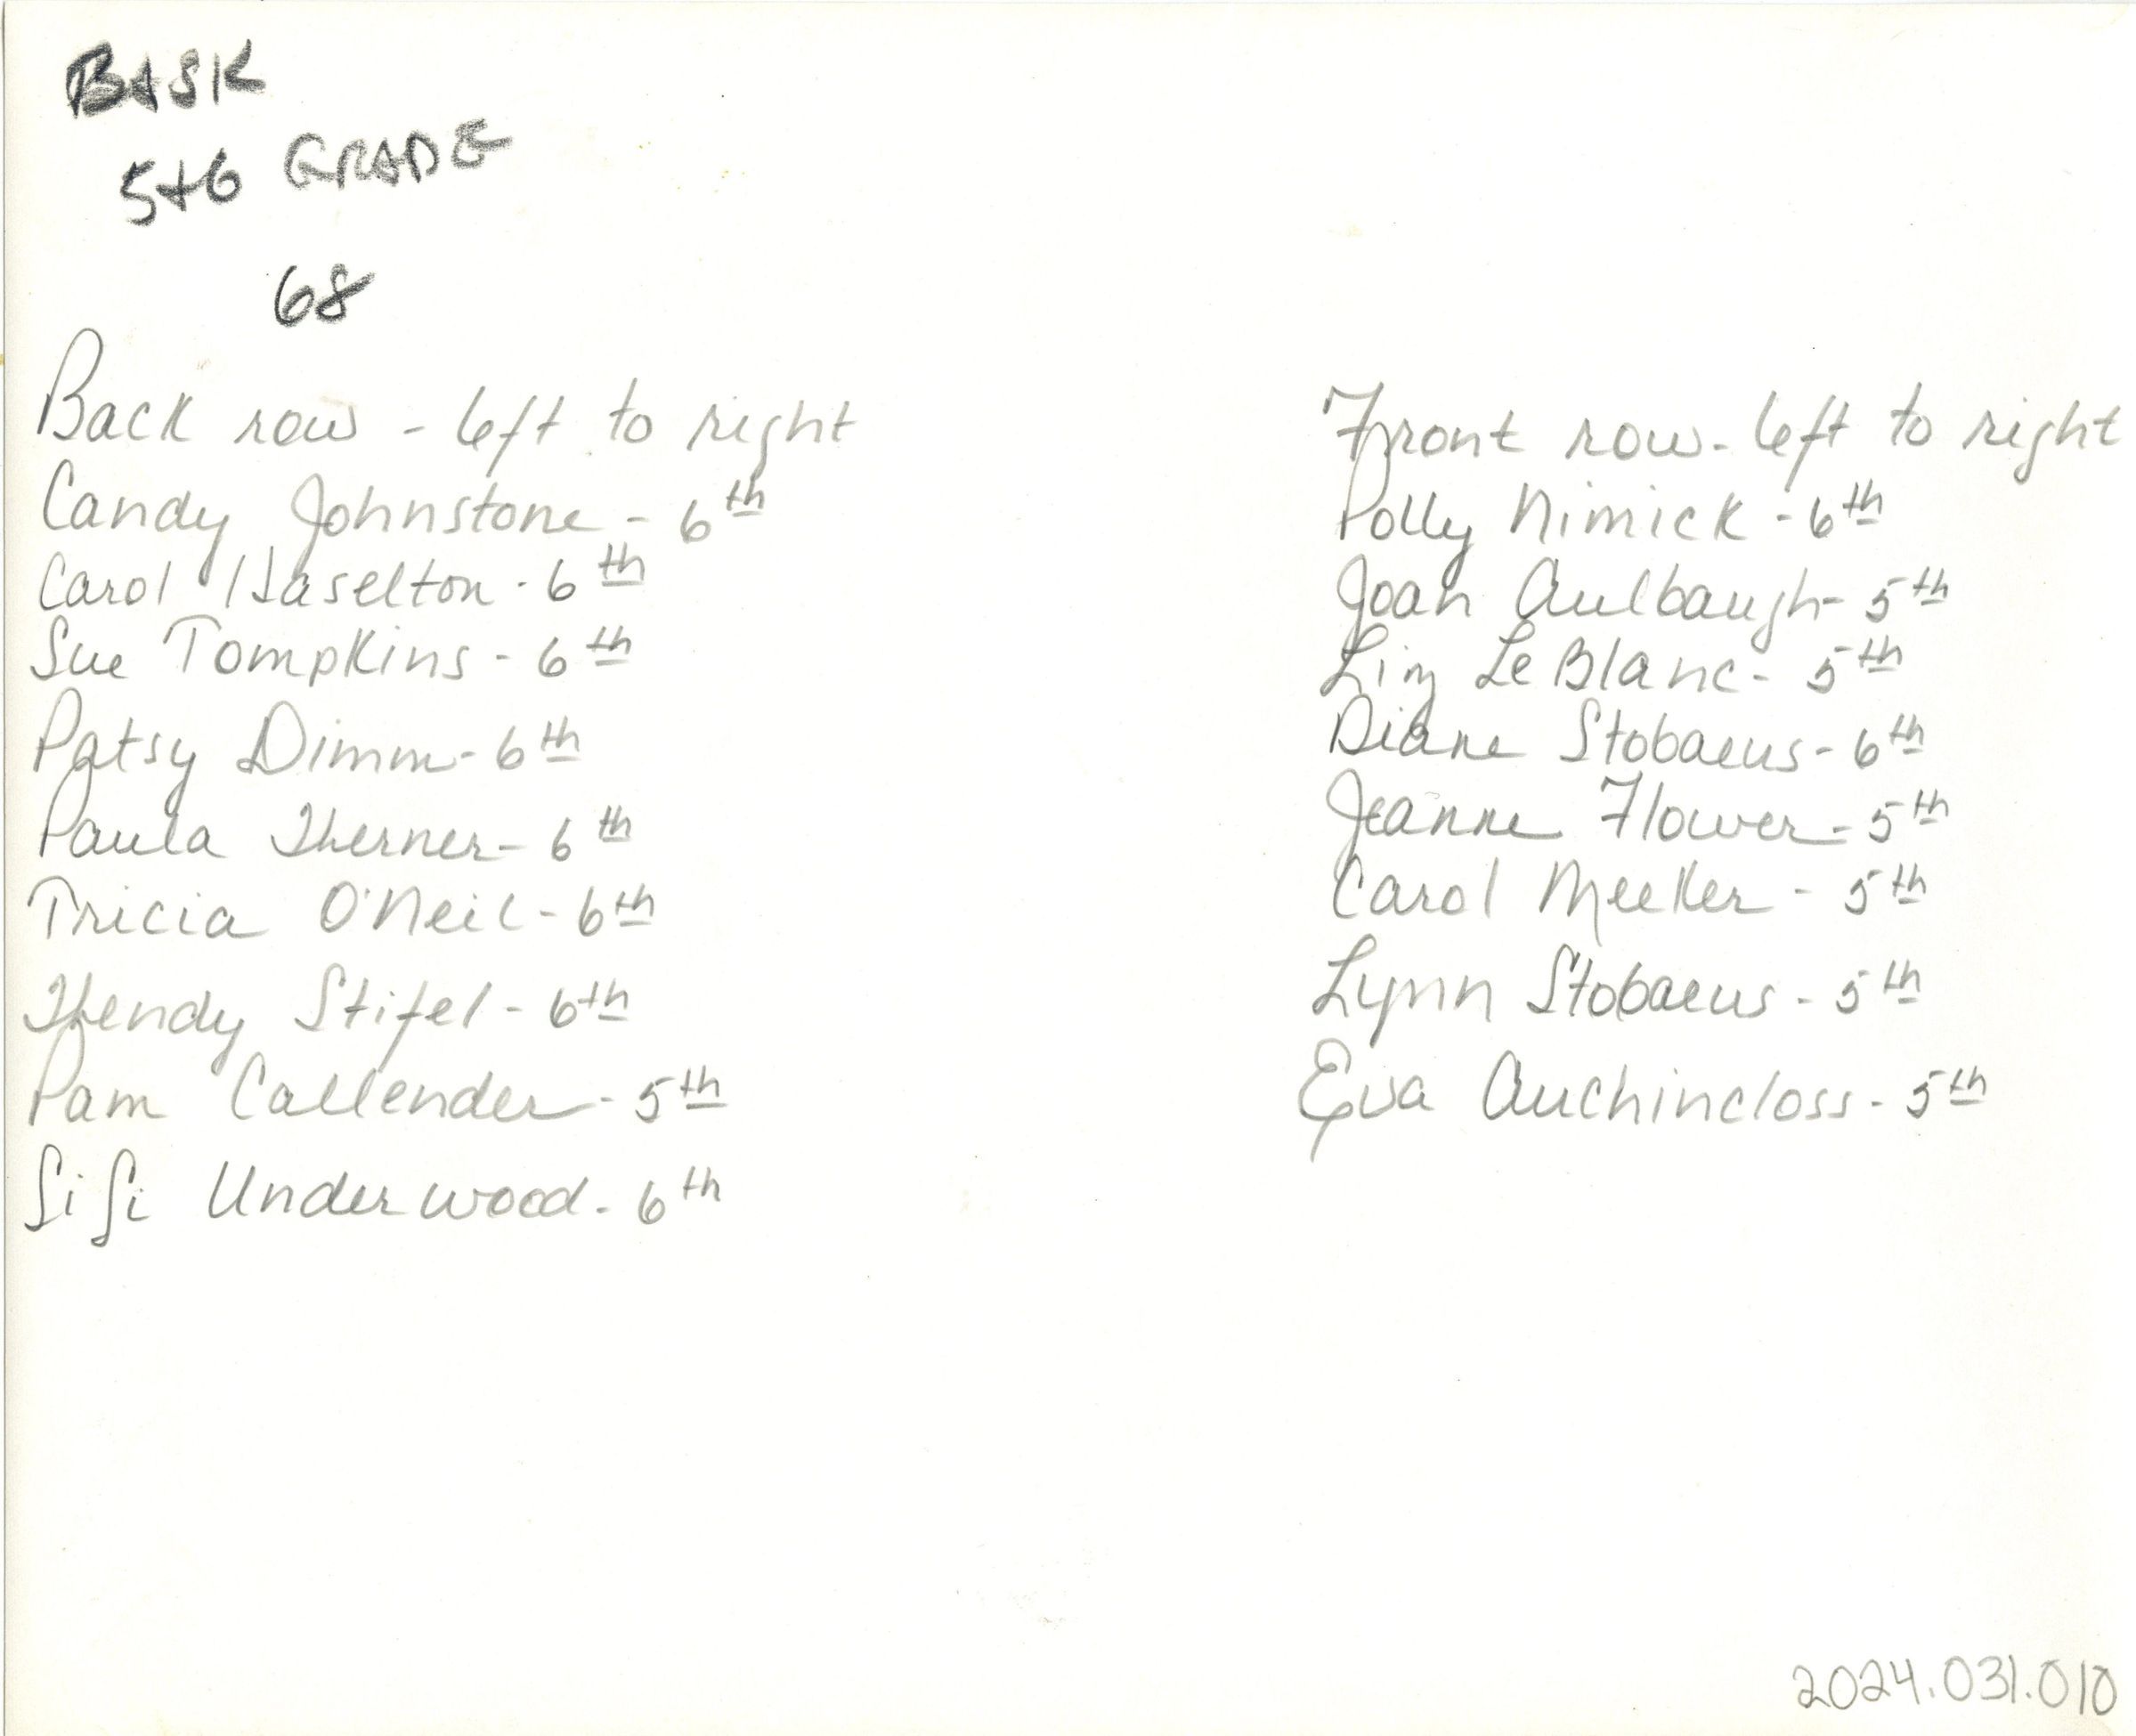 BASK
5+6 GRADE
68
Back row - left to right
Candy Johnstone - 6th
Carol Haselton - 6th
Sue Tompkins - 6th
Patsy Dimm - 6th
Paula Werner - 6th
Tricia O'Neil - 6th
Wendy Stifel - 6th
Pam Callender - 5th
SiSi Underwood - 6th
Front row - left to right
Polly Nimick - 6th
Joan Aulbaugh - 5th
Liz LeBlanc - 5th
Diane Stobaeus - 6th
Jeanne Flower - 5th
Carol Meeker - 5th
Lynn Stobaeus - 5th
Eva Auchincloss - 5th
2024.031.010